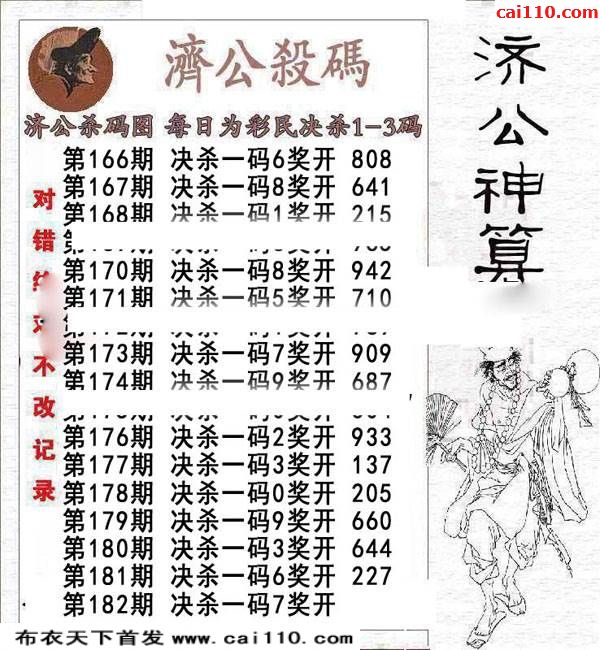 cai110.com
濟公殺碼
济公杀码图 每日为彩民决杀1-3码
第166期 决杀一码6奖开 808
第167期 决杀一码8奖开 641
第168期 决杀一码1奖开 215
第170期 决杀一码8奖开 942
第171期 决杀一码5奖开 710
第173期 决杀一码7奖开 909
第174期 决杀一码9奖开 687
第176期 决杀一码2奖开 933
第177期 决杀一码3奖开 137
第178期 决杀一码0奖开 205
第179期 决杀一码9奖开 660
第180期 决杀一码3奖开 644
第181期 决杀一码6奖开 227
第182期 决杀一码7奖开
对错 不改记录
济公神算
布衣天下首发 www.cai110.com